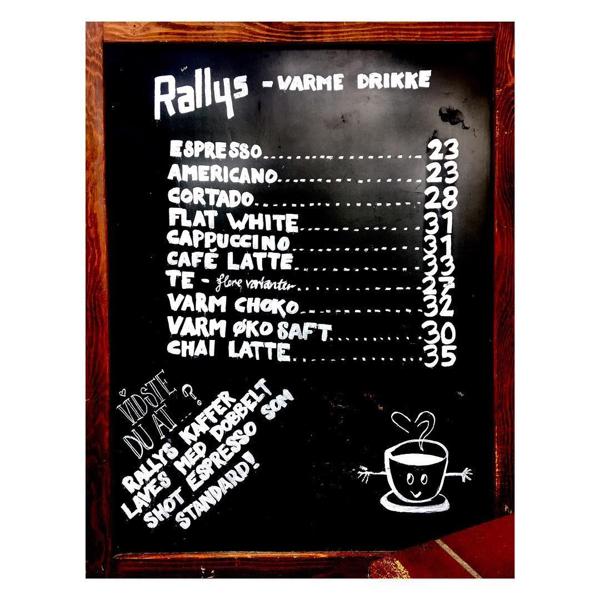 Rallys - VARME DRIKKE
ESPRESSO 23
AMERICANO 23
CORTADO 28
FLAT WHITE 31
CAPPUCCINO 31
CAFÉ LATTE 33
TE - flere varianter 27
VARM CHOKO 32
VARM ØKO SAFT 30
CHAI LATTE 35
VIDSTE
DU AT...?
RALLYS KAFFER
LAVES MED DOBBELT
SHOT ESPRESSO SOM
STANDARD!